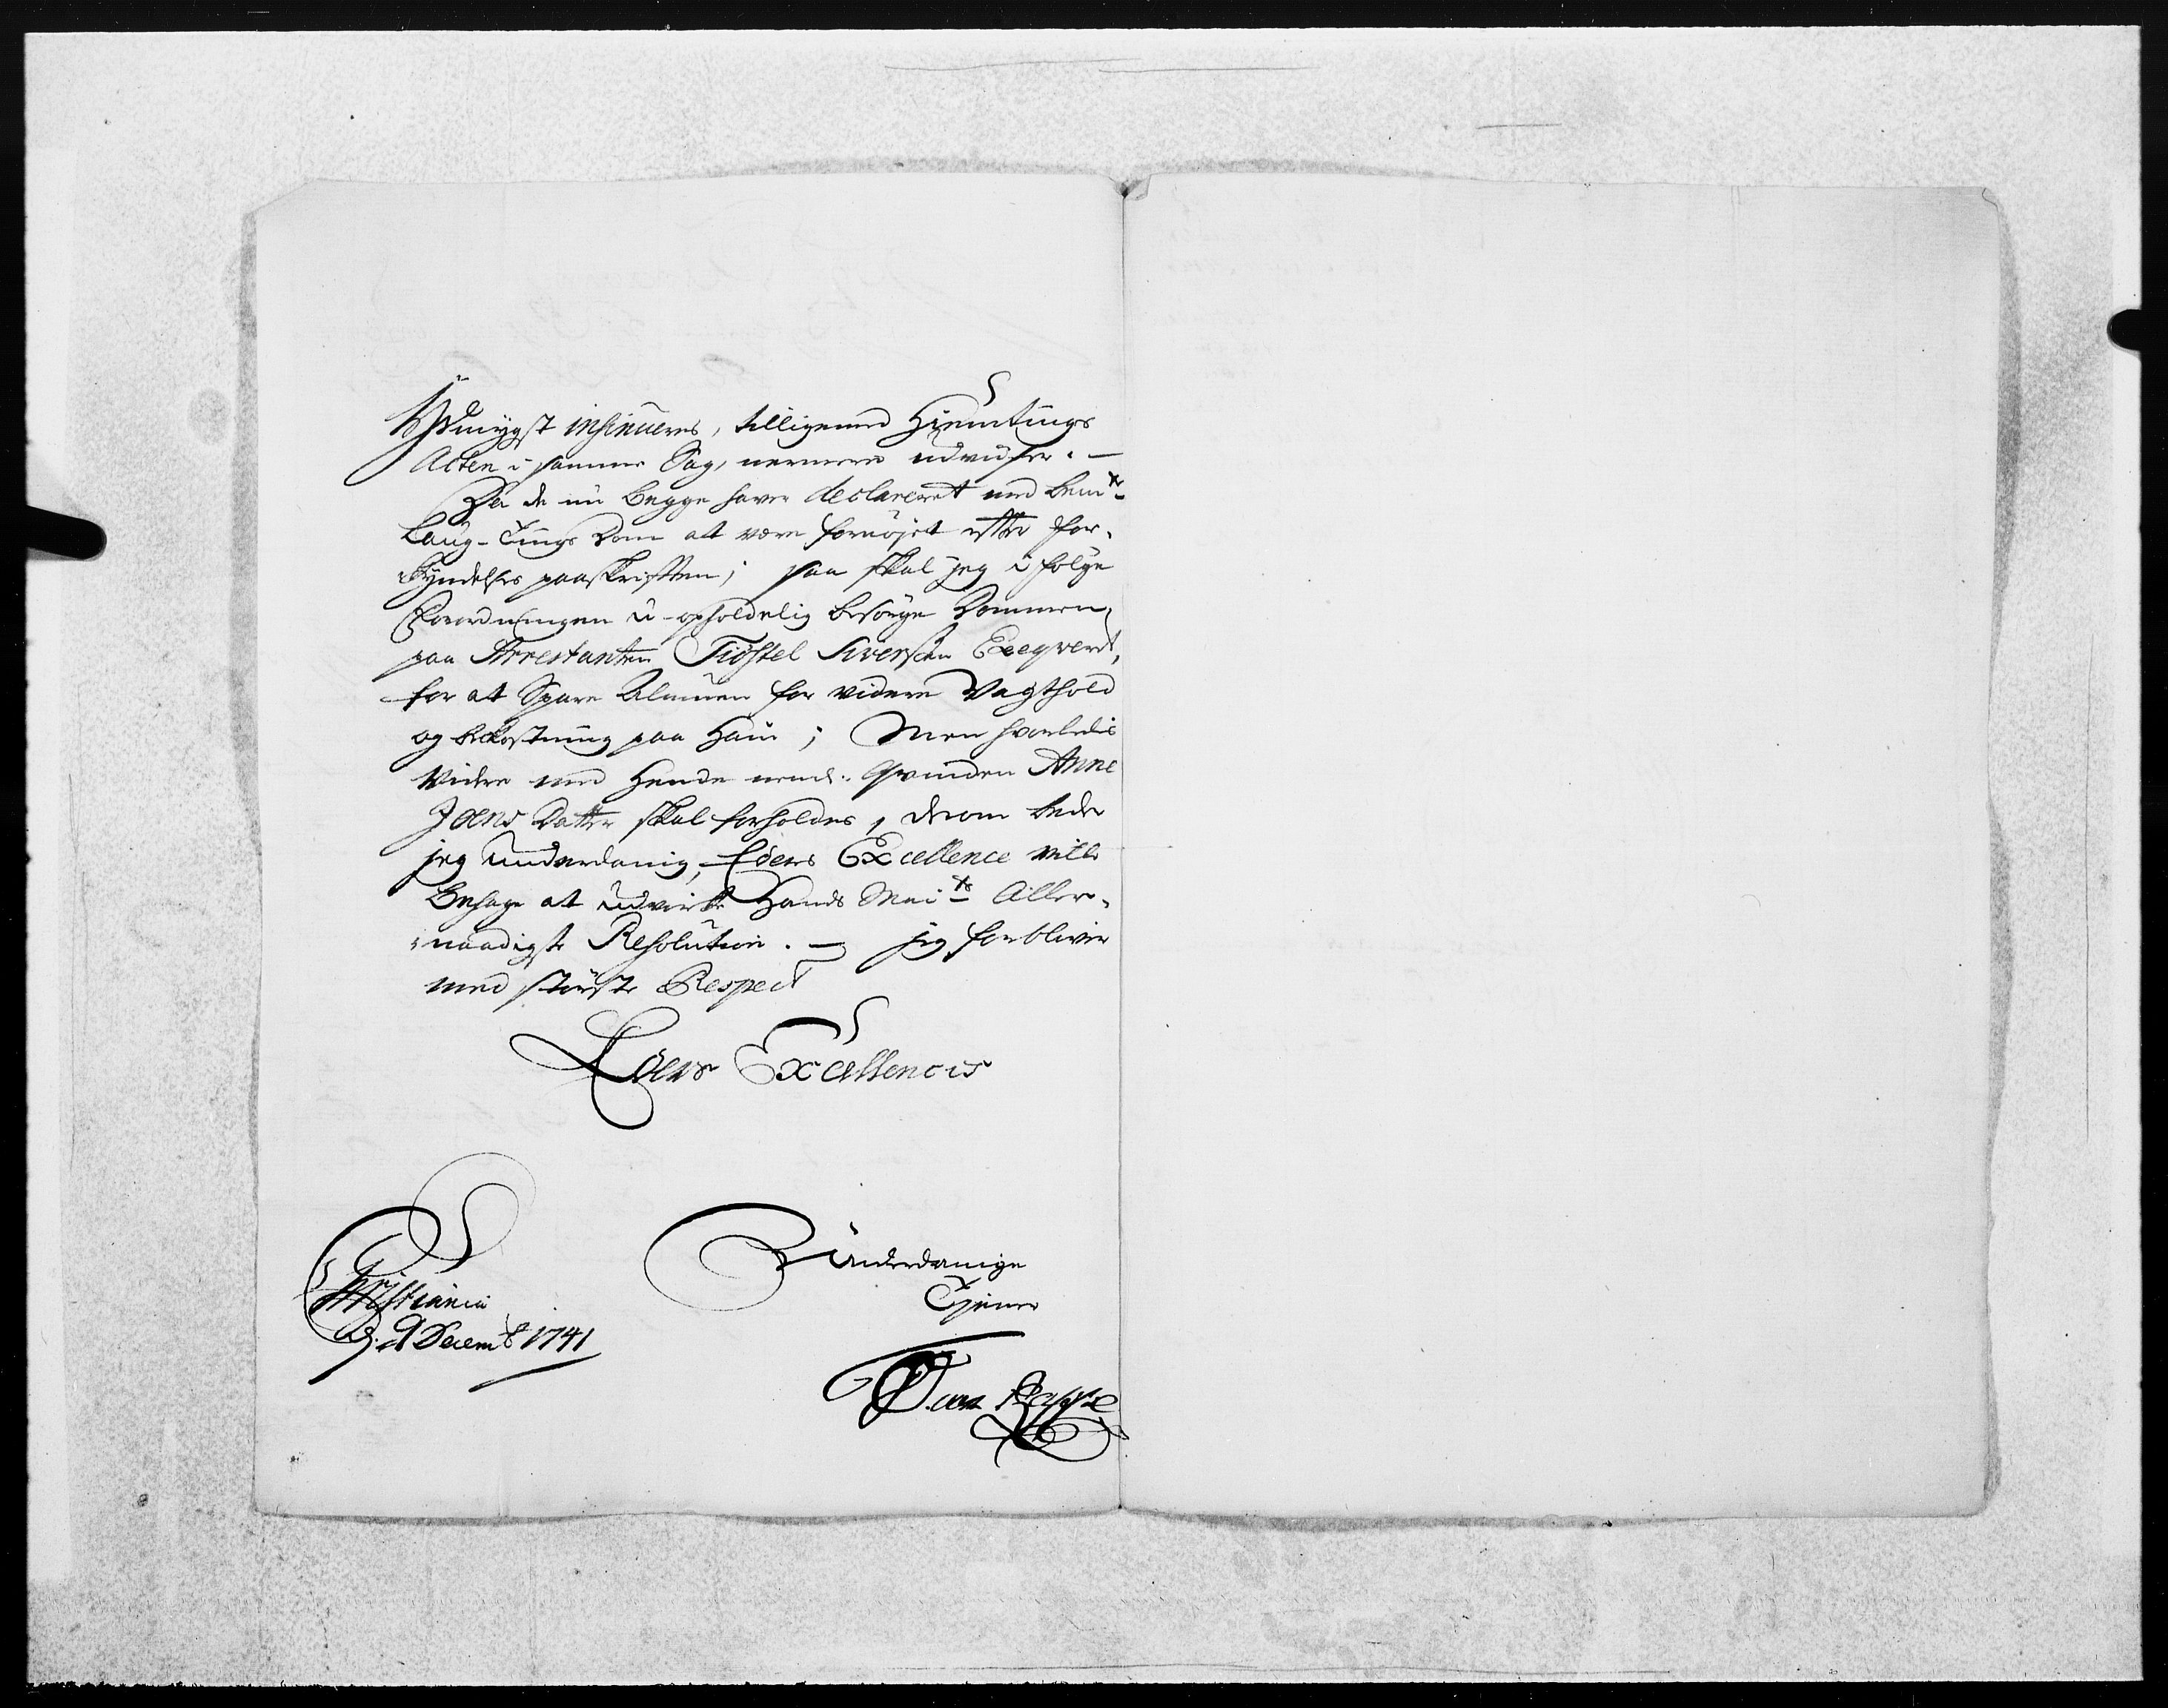 Ydmygst insinueres, tilligemed Hiemtings
Acten i samme Sag, nermere udviiser. —
Da de nu begge haver declareret med bem.te
Laug-Tings Dom at være fornøjet efter For-
kyndelses paaskriften; saa skal jeg i følge
Forordningen u-opholdelig besørge Dommen
paa Arrestanten Tiøstel Siversen Exeqveret,
for at Spare Almuen for videre Vagthold
og bekostning paa Ham; Men hvorledis
Videre med Hende neml: Qvinden Anne
Joens Datter skal forholdes, derom beder
jeg underdanig, Eders Excellence ville
Behage at udvirke Hands Mai.ts Aller-
naadigste Resolution. — jeg forbliver
med største Respect
Eders Excellences
Christiania
d. 9 Decemb 1741
Underdanige
Tjener